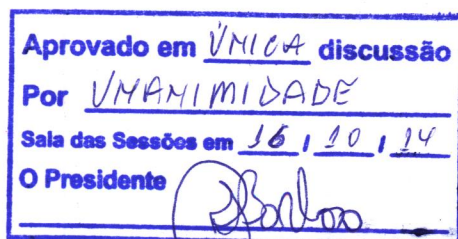 Aprovado em ÚNICA discussão
Por UNANIMIDADE
Sala das Sessões em 16 / 10 / 14
O Presidente